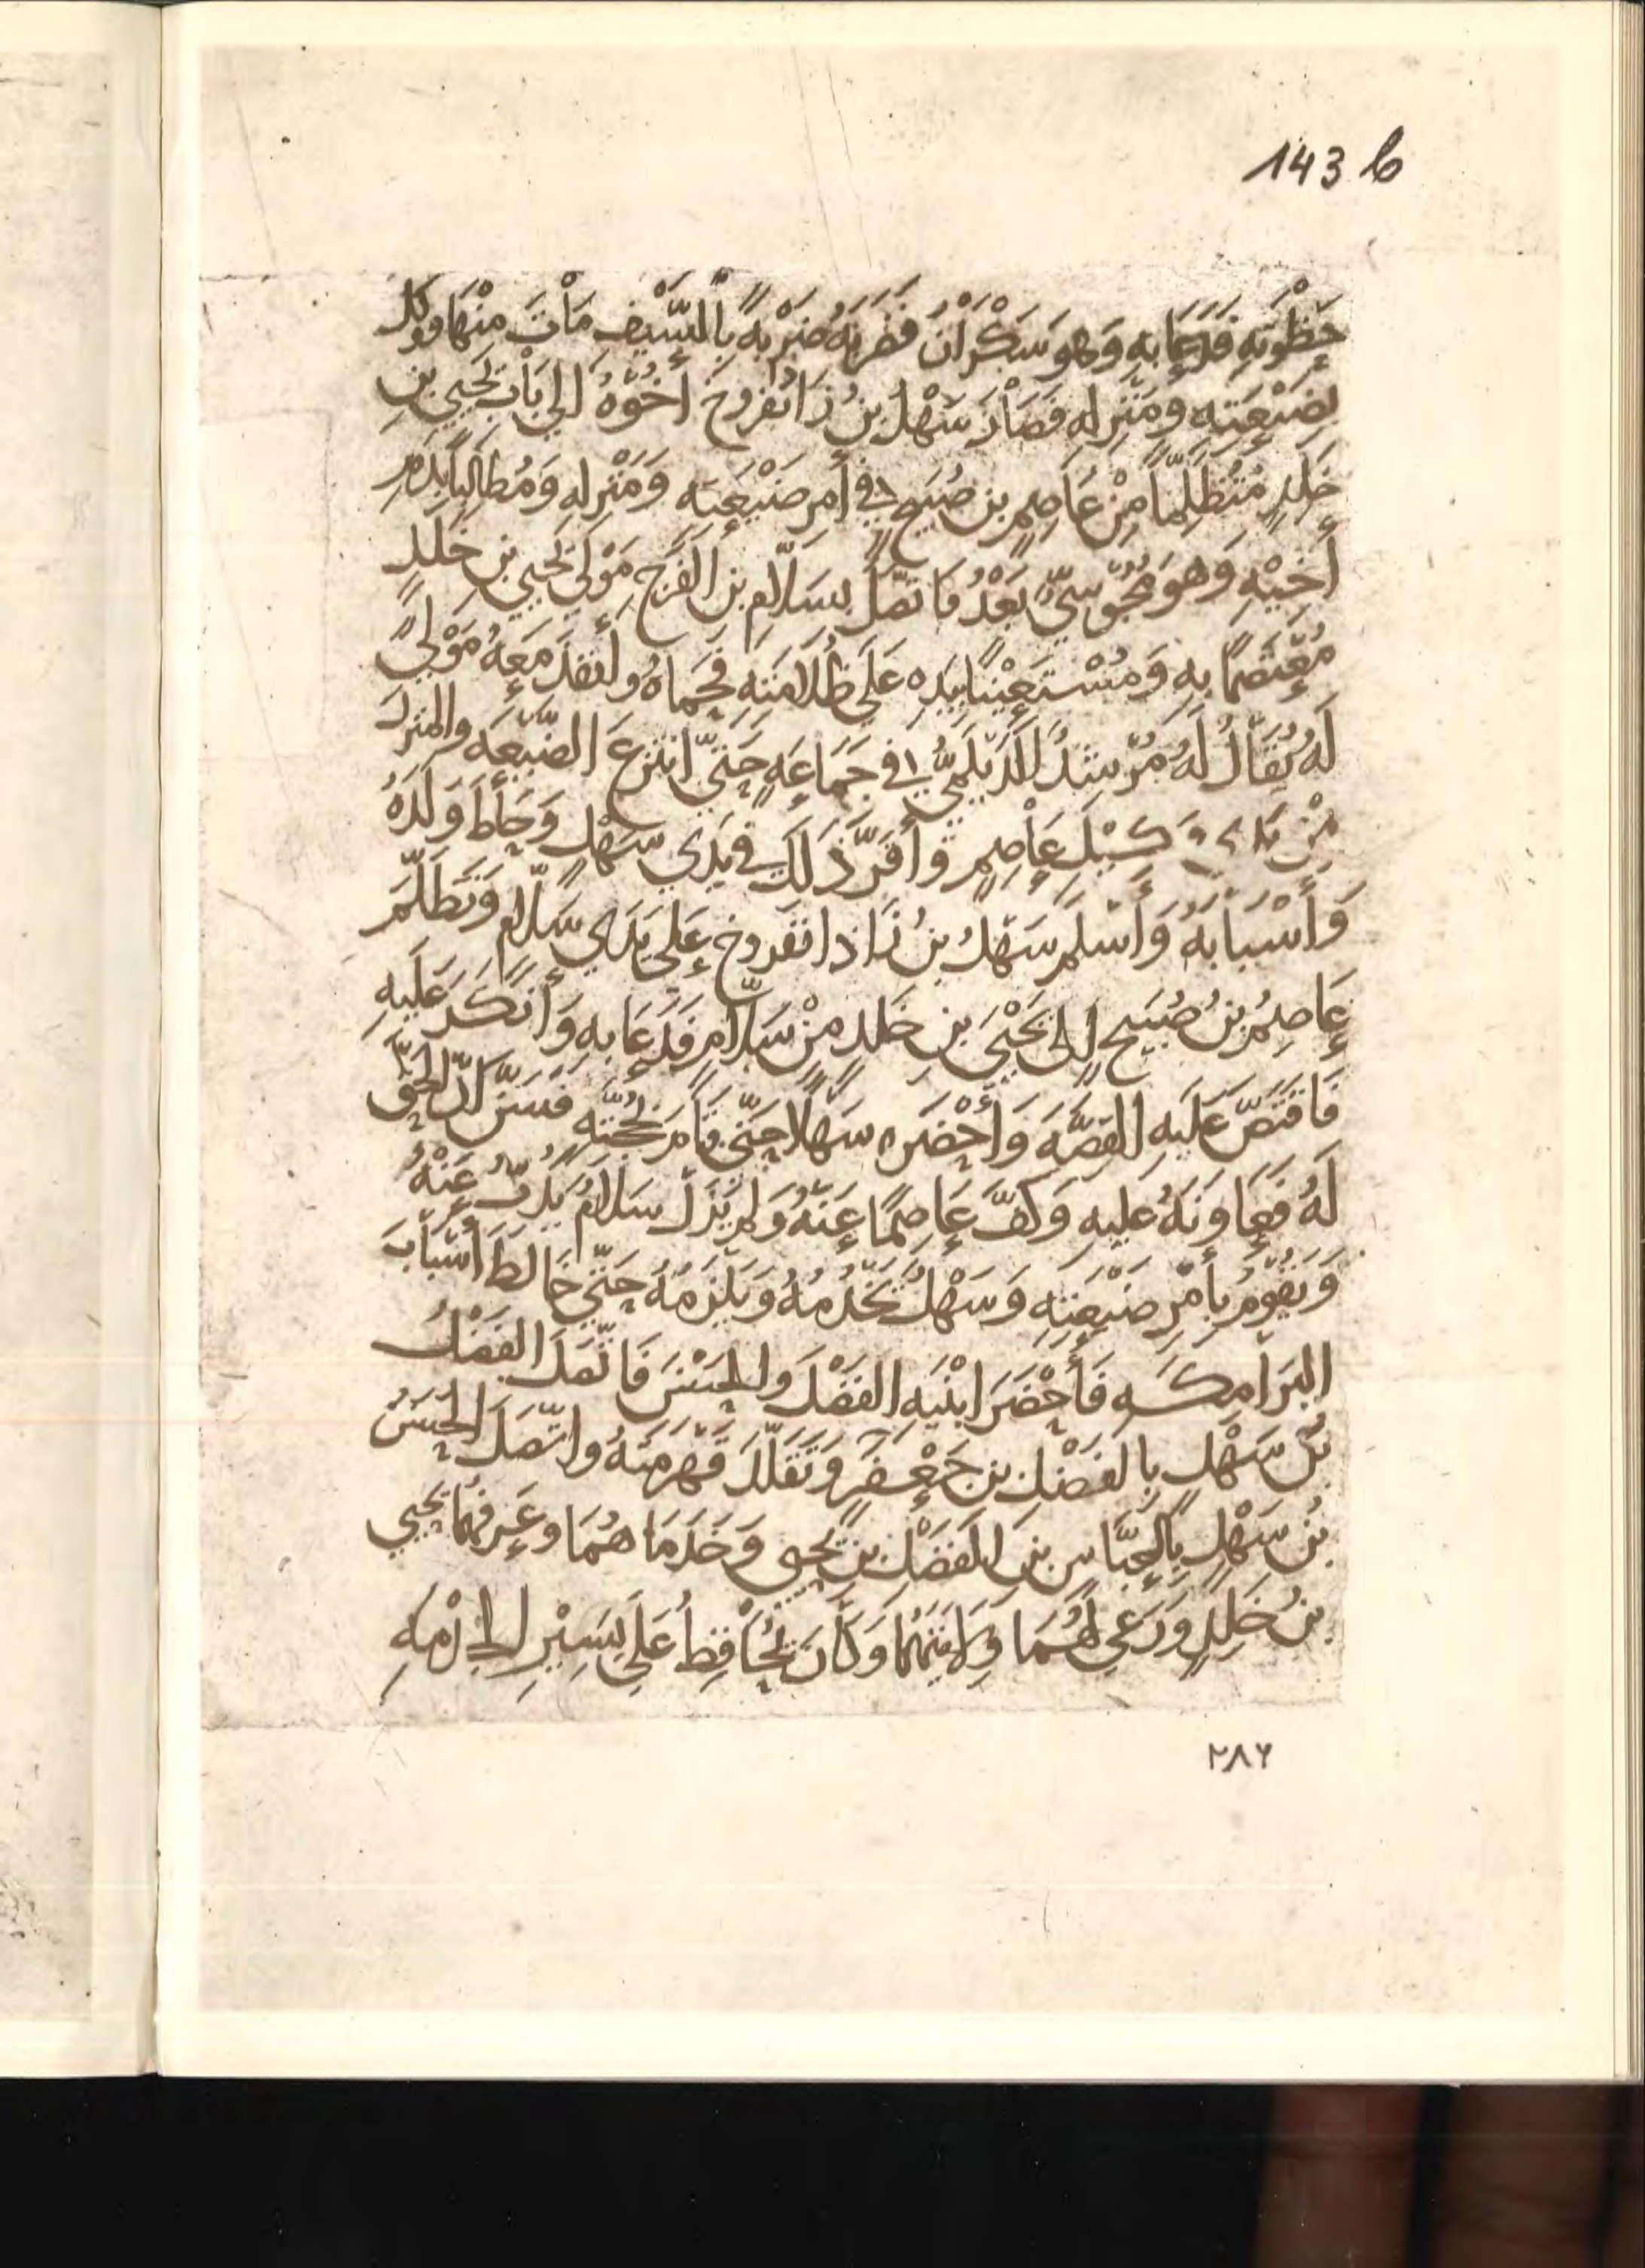 143 b
حَظْوَتِهِ فَدَعَا بِهِ وَهُوَ سَكْرَانُ فَضَرَبَهُ ضَرْبَهً بِالسَّيْفِ مَاتَ مِنْهَا وَوَكَّلَ
بِضَيْعَتِه وَمَنْزِلِهِ فَصَارَ سَهْلُ بنُ زَاذُنْفَروخَ أَخُوهُ الى بَابِ يَحْيَى بنِ
خَلَدٍ مُتَظَلِّماً مِنْ عَاصِمِ بن صُبَيحٍ فى أمرِ ضَيْعَتِه وَمَنْزِلهِ وَمُطَالِباً بِدَمِ
أَخِيْهِ وَهُوَ مَجُوسِيٌّ بَعْدُ فَاتَّصَلَ بِسَلَّامِ بن الفَرَجِ مَوْلَى يَحْيى بنِ خَلَدٍ
مُعْتَصِمًا بِهِ وَمُسْتَعِيْنًا بِيَدِه عَلَى ظُلَامَتِهِ فَحَمَاهُ وأَنفَذَ مَعَهُ مَوْلًى
لَهُ يُقَالُ لَهُ مُرْشِدٌ الدَّيْلَمِيُّ فى جَمَاعَهٍ حَتَّى انتَزعَ الضَّيْعَهَ والمَنزِلَ
مِنْ يَدِ وَكِيْلِ عَاصِمٍ وأَقَرَّ ذَلِكَ فى يَدَي سَهْلٍ وَحَاطَ وَلَدَهُ
وَأَسْبَابَهُ وَأَسْلَمَ سَهْلُ بنُ زَاذانفَروخ عَلى يَدَي سَلَّامٍ وَتَظَلَّمَ
عَاصِمُ بنُ صُبَيحٍ إِلَى يَحْيَى بنِ خَلَدٍ مِنْ سَلَّامٍ فَدَعَا بِهِ وَأَنكَرَ عَلَيهِ
فَاقتَصَّ عَلَيهِ القِصَّهَ وَأَحْضَرَ سَهْلًا حَتَّى قَامَ بِحُجَّتِهِ فَسَرَّ أَنَّ الحَقَّ
لَهُ فَعَاوَنَهُ عَلَيهِ وَكَفَّ عَاصِمًا عَنْهُ وَلَمْ يَزَلْ سَلَّامٌ يَذُبُّ عَنْهُ
وَيَقُومُ بِأَمْرِ ضَيعَتِهِ وَسَهْلٌ يَخْدُمُهُ وَيَلْزَمُهُ حَتَّى خَالَطَ أَسْبَابَ
البَرَامكَهِ فَأَحْضَرَ ابْنَيهِ الفَضْلَ والحَسَنَ فَاتَّصَلَ الفَضْلُ
بنُ سَهْلٍ بِالفَضْلِ بن جَعْفَرٍ وَتَقَلَّدَ قَهْرَمَتَهُ واتَّصَلَ الحَسَنُ
بْنُ سَهْلٍ بِالعَبَّاسِ بن الفَضْلِ بنِ يَحيى وَخَدَمَاهُمَا وعَرفَهُمَا يَحْيى
بنُ خَلَدٍ وَرَعَى لَهُمَا وَلَايَتَهُمَا وَكَانَ يُحَافِظُ عَلَى يَسِيْرِ الخِدْمَهِ
٢٨٦